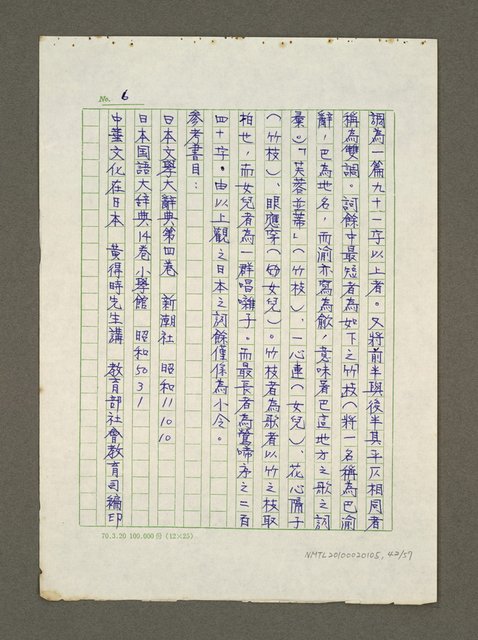 No. 6
調為一篇九十一字以上者。又將前半與後半其平仄相同者
稱為雙調。詞餘中最短者為如下之竹枝(將一名稱為巴渝
辭,巴為地名,而渝亦寫為歈,意味著巴這地方之歌之詞
彙。)「芙蓉並蒂」(竹枝)、一心連(女兒)、花心隔子
(竹枝)、眼應穿(女兒)。竹枝者為歌者以竹之枝取
拍也,而女兒者為一群唱囃子。而最長者為鶯啼序之二百
四十字。由以上觀之日本之詞餘僅係為小令。
參考書目:
日本文學大辭典第四卷 新潮社 昭和11 10 10
日本国語大辞典14卷 小學館 昭和50 3 1
中華文化在日本 黃得時先生講 教育部社會教育司編印
70.3.20 100,000份 (12×25)
NMTL20100020105, 42/57